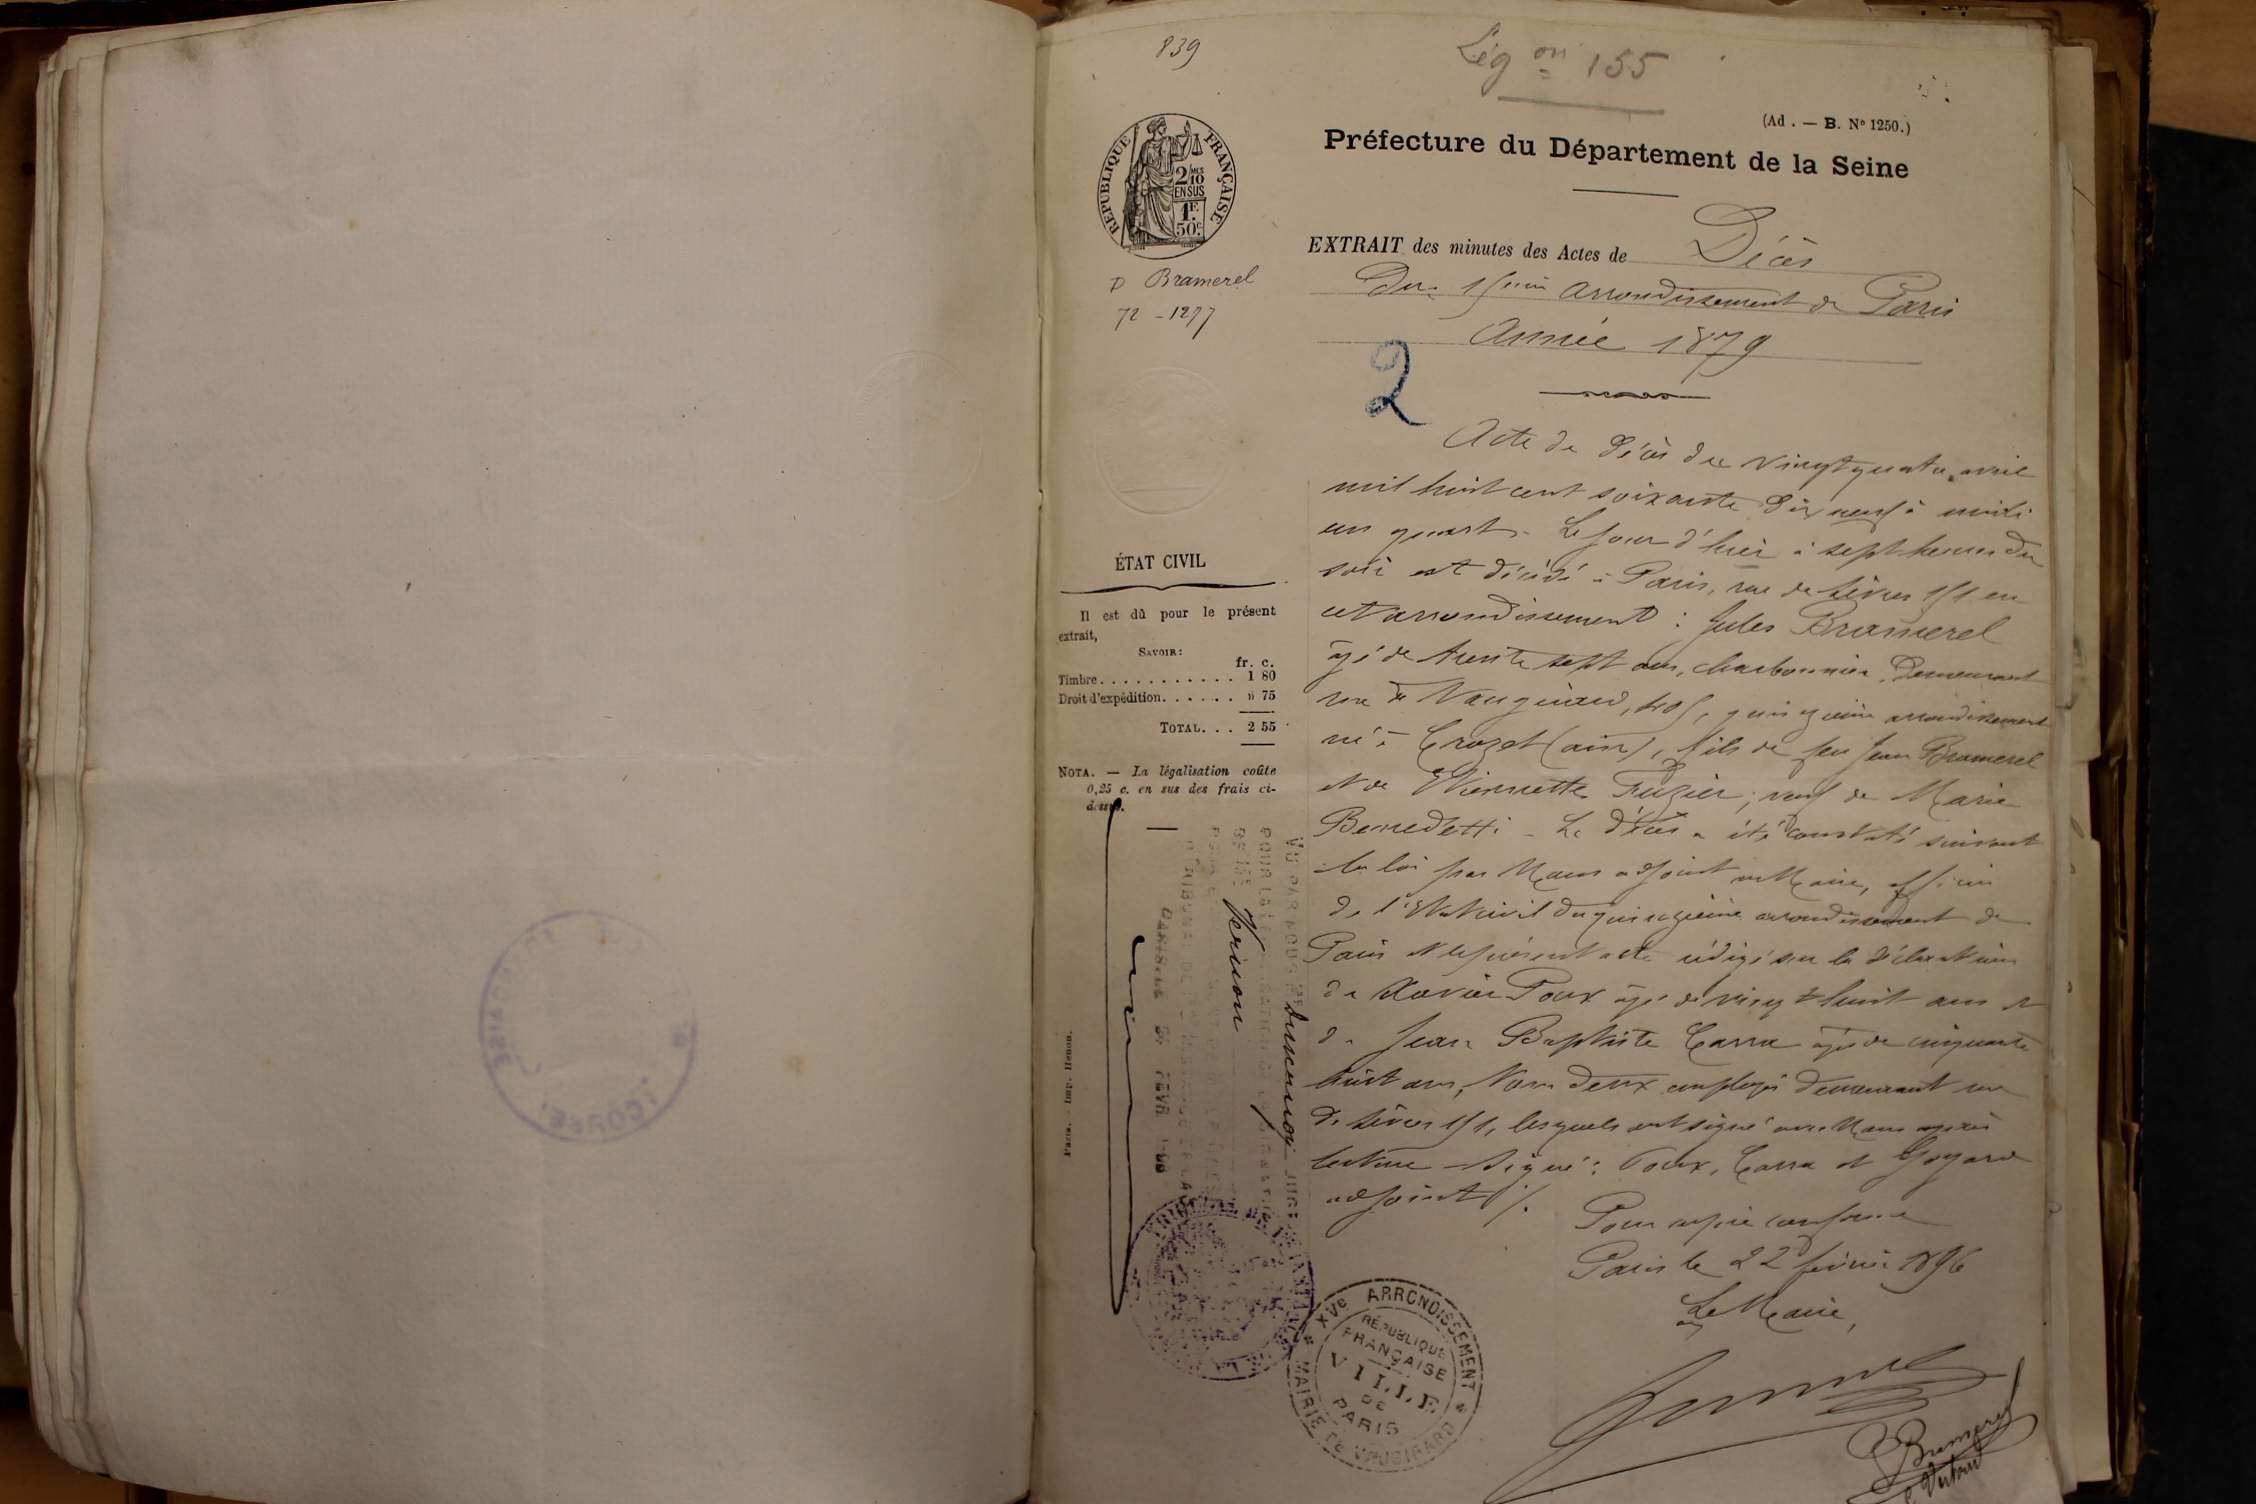 839
Lég on 155
(Ad. — B. Nº 1250.)
Préfecture du Département de la Seine
RÉPUBLIQUE FRANÇAISE
2/10 MES
EN SUS
1F.
50c
D Bramerel
72 - 1277
EXTRAIT des minutes des Actes de Décès
Du 15eme arrondissement de Paris
Année 1879
2
Acte de décès du vingt quatre avril
mil huit cent soixante dix neuf à midi
un quart. Le jour d'hier à sept heures du
soir est décédé à Paris, rue de Sèvres 151 en
cet arrondissement : Jules Bramerel
âgé de trente sept ans, charbonnier, demeurant
rue de Vaugirard, quinzième arrondissement
né à Crozet (ain), fils de feu Jean Bramerel
et de Etiennette Fuzier; veuf de Marie
Benedetti - Le décès a été constaté suivant
la loi par Nous adjoint au Maire, officier
de l'Etat civil du quinzième arrondissement de
Paris et le présent acte rédigé sur la déclaration
de Xavier Poux âgé de vingt huit ans et
de Jean Baptiste Carra âgé de cinquante
huit ans, tous deux employés demeurant rue
de Sèvres 151, lesquels ont signé avec Nous après
lecture - Signé : Poux, Carra et Goyard
adjoint ./.
Pour copie conforme
Paris le 22 février 1896
Le Maire,
ÉTAT CIVIL
Il est dû pour le présent
extrait,
SAVOIR:
fr. c.
Timbre . . . . . . . . . . . 1 80
Droit d'expédition. . . . . . » 75
TOTAL. . . 2 55
NOTA. — La légalisation coûte
0,25 c. en sus des frais ci-
dessus.
VU PAR NOUS Me Ducauroy JUGE
Verinon
FEVR
Paris. — Imp. Henon.
TRIBUNAL DE 1re INSTANCE
XVe ARRONDISSEMENT * MAIRIE DE VAUGIRARD *
RÉPUBLIQUE
FRANÇAISE
VILLE
DE
PARIS
Bramerel
(CORSE)